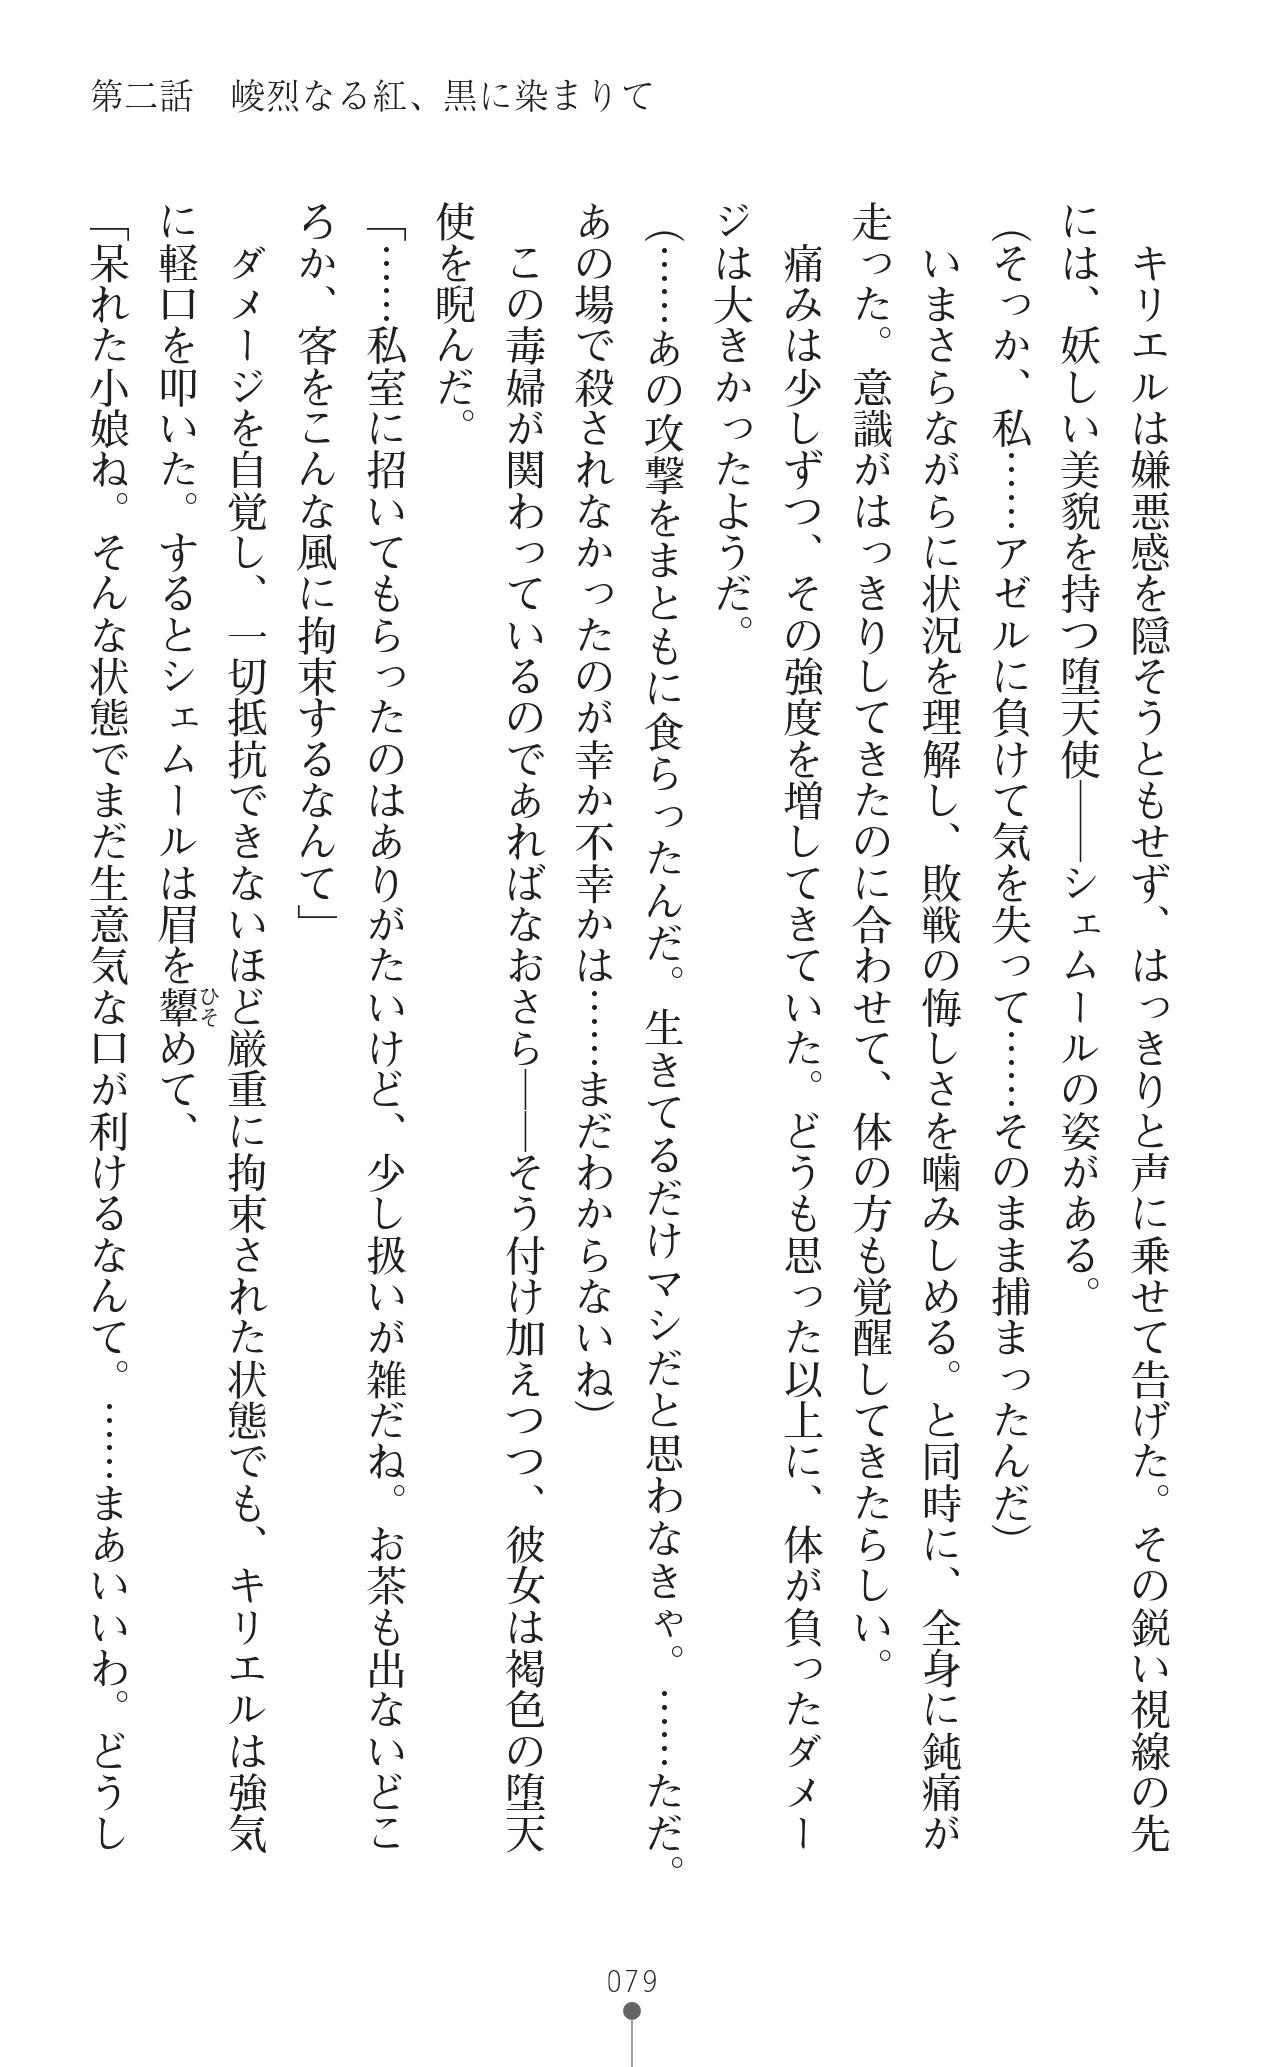 第二話　峻烈なる紅、黒に染まりて
　キリエルは嫌悪感を隠そうともせず、はっきりと声に乗せて告げた。その鋭い視線の先
には、妖しい美貌を持つ堕天使――シェムールの姿がある。
(そっか、私……アゼルに負けて気を失って……そのまま捕まったんだ)
　いまさらながらに状況を理解し、敗戦の悔しさを噛みしめる。と同時に、全身に鈍痛が
走った。意識がはっきりしてきたのに合わせて、体の方も覚醒してきたらしい。
　痛みは少しずつ、その強度を増してきていた。どうも思った以上に、体が負ったダメー
ジは大きかったようだ。
(……あの攻撃をまともに食らったんだ。生きてるだけマシだと思わなきゃ。……ただ。
あの場で殺されなかったのが幸か不幸かは……まだわからないね)
　この毒婦が関わっているのであればなおさら――そう付け加えつつ、彼女は褐色の堕天
使を睨んだ。
「……私室に招いてもらったのはありがたいけど、少し扱いが雑だね。お茶も出ないどこ
ろか、客をこんな風に拘束するなんて」
　ダメージを自覚し、一切抵抗できないほど厳重に拘束された状態でも、キリエルは強気
に軽口を叩いた。するとシェムールは眉を顰ひそめて、
「呆れた小娘ね。そんな状態でまだ生意気な口が利けるなんて。……まあいいわ。どうし
079